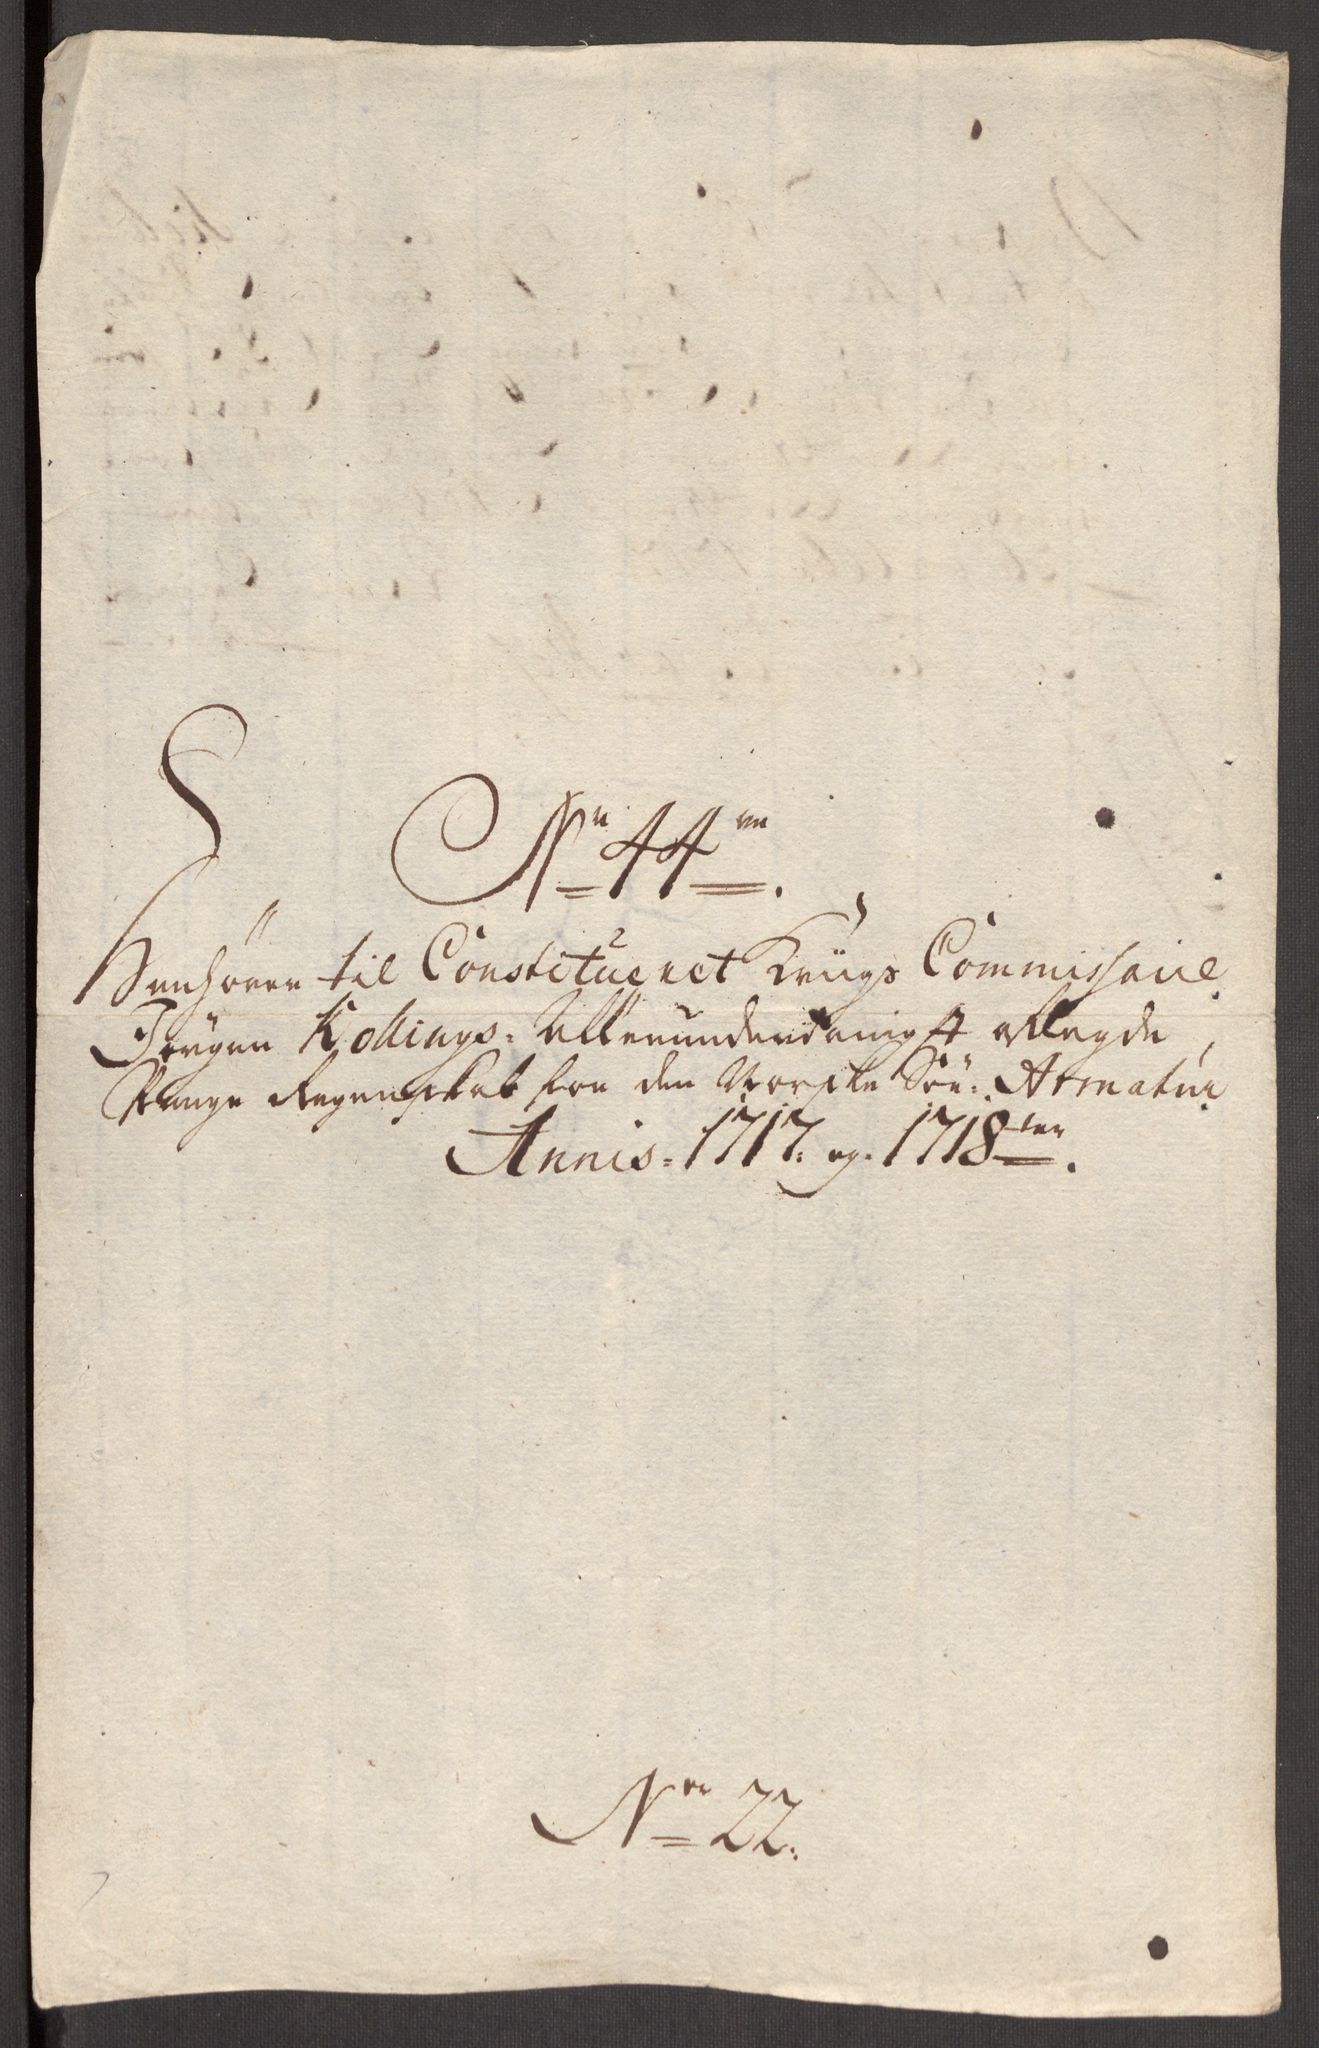 No 44
Henhörer til Constitueret Kriigs Commissarie
Jörgen Kollings: Allerunderdanigst aflegde
Penge Regenskab for den Norske Söe: Armatur
Annis: 1717: og. 1718ten.
No 22: